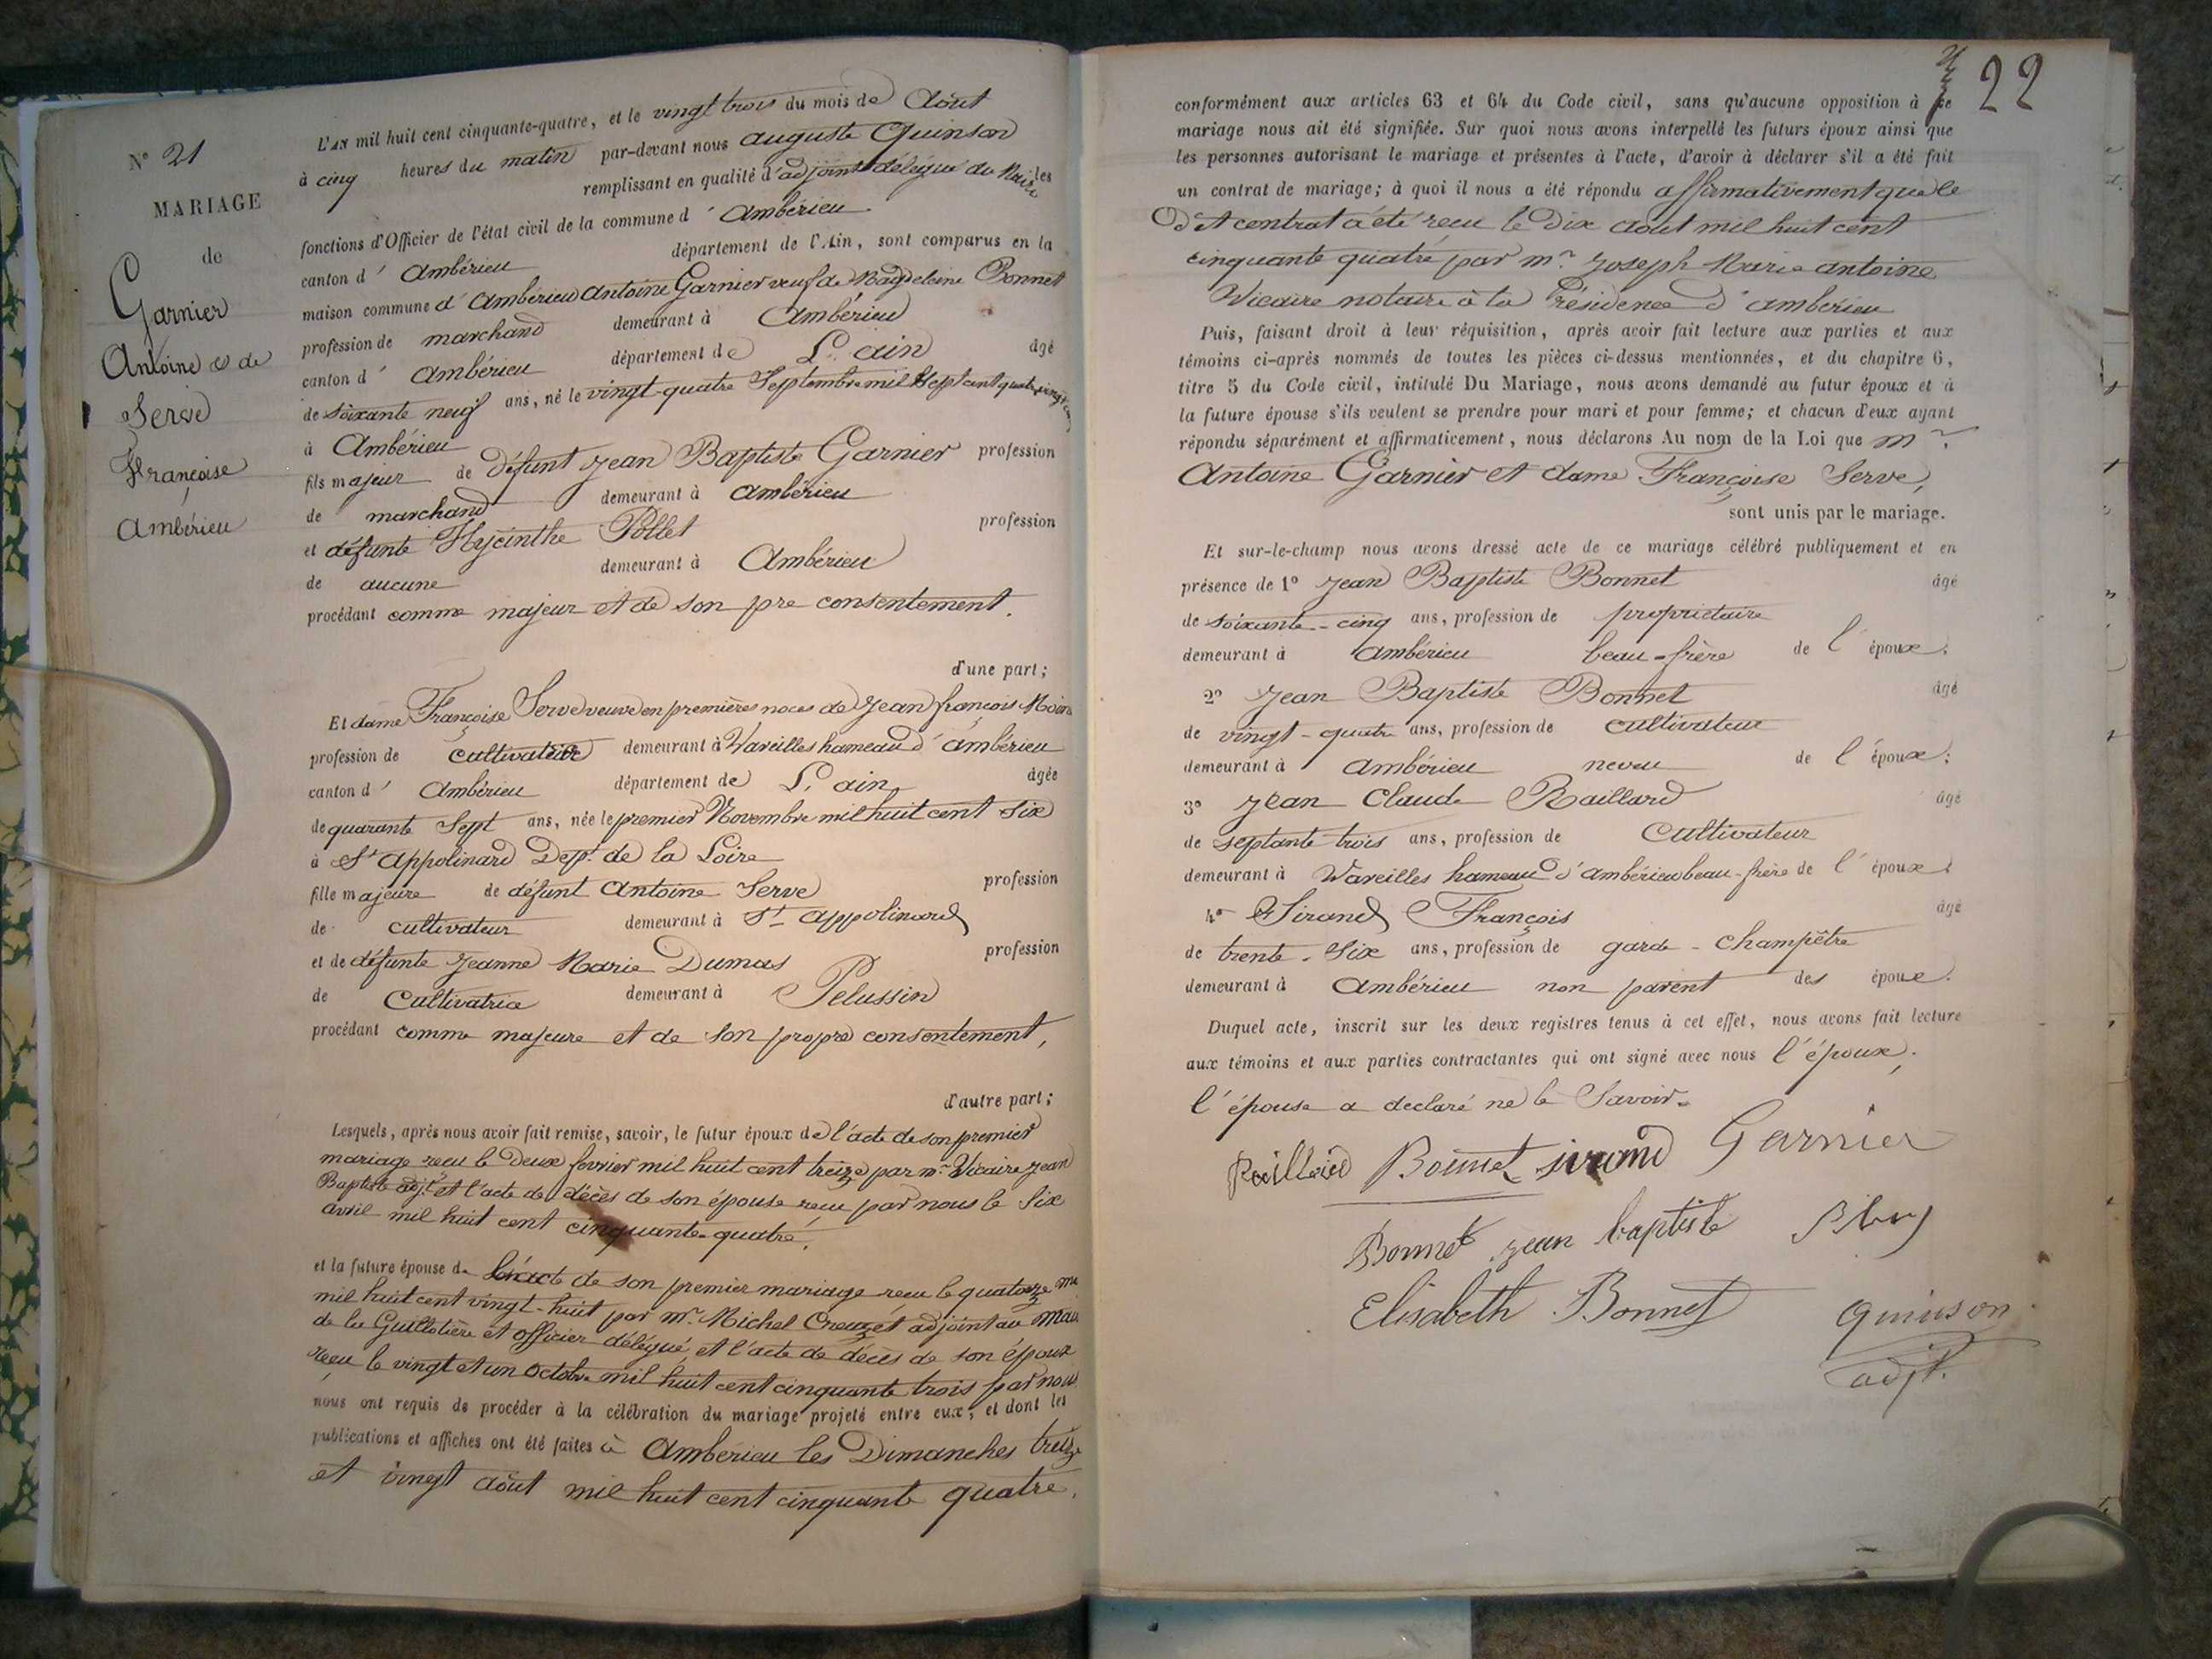 N° 21
MARIAGE
de
Garnier
Antoine & de
Serve
Françoise
Ambérieu
L'AN mil huit cent cinquante-quatre, et le vingt trois du mois de Août
à cinq heures du matin par-devant nous auguste Quinson
remplissant en qualité d'adjoint délégué du Maire les
fonctions d'Officier de l'état civil de la commune d' Ambérieu
canton d' Ambérieu département de l'Ain, sont comparus en la
maison commune d' Ambérieu Antoine Garnier veuf de Magdeleine Bonnet
profession de marchand demeurant à Ambérieu
canton d' Ambérieu département de L'ain âgé
de soixante neuf ans, né le vingt-quatre Septembre mil Sept cent quatre vingt
à Ambérieu
fils majeur de défunt Jean Baptiste Garnier profession
de marchand demeurant à Ambérieu
et défunte Hycinthe Pollet profession
de aucune demeurant à Ambérieu
procédant comme majeur et de son pre consentement.
d'une part;
Et dame Françoise Serve veuve en premières noces de Jean françois
profession de Cultivatrice demeurant à Vareilles hameau d'ambérieu
canton d' Ambérieu département de L'ain âgée
de quarante Sept ans, née le premier Novembre mil huit cent Six
à St Appolinard Dept. de la Loire
fille majeure de défunt Antoine Serve profession
de cultivateur demeurant à St Appolinard
et de défunte Jeanne Marie Dumas profession
de Cultivatrice demeurant à Pelussin
procédant comme majeure et de son propre consentement,
d'autre part;
Lesquels, après nous avoir fait remise, savoir, le futur époux de l'acte de son premier
mariage recu le Deux fevrier mil huit cent treize par mr. Vicaire Jean
Baptiste adjt. et l'acte de décès de son épouse recu par nous le Six
avril mil huit cent cinquante-quatre.
et la future épouse de l'acte de son premier mariage recu le quatorze
mil huit cent vingt-huit par mr. Michel Creuzet adjoint au
de la Guillotière et officier délégué, et l'acte de décès de son époux
reçu le vingt et un Octobre mil huit cent cinquante trois par nous
nous ont requis de procéder à la célébration du mariage projeté entre eux; et dont les
publications et affiches ont été faites à Ambérieu les Dimanches treize
et vingt août mil huit cent cinquante quatre.
22
conformément aux articles 63 et 64 du Code civil, sans qu'aucune opposition à ce
mariage nous ait été signifiée. Sur quoi nous avons interpellé les futurs époux ainsi que
les personnes autorisant le mariage et présentes à l'acte, d'avoir à déclarer s'il a été fait
un contrat de mariage; à quoi il nous a été répondu affirmativement que le
Dit contrat a été recu le Dix août mil huit cent
cinquante quatre par mr. Joseph Marie Antoine
Vicaire notaire à la Résidence d'ambérieu
Puis, faisant droit à leur réquisition, après avoir fait lecture aux parties et aux
témoins ci-après nommés de toutes les pièces ci-dessus mentionnées, et du chapitre 6,
titre 5 du Code civil, intitulé Du Mariage, nous avons demandé au futur époux et à
la future épouse s'ils veulent se prendre pour mari et pour femme; et chacun d'eux ayant
répondu séparément et affirmativement, nous déclarons Au nom de la Loi que mr.
Antoine Garnier et dame Françoise Serve,
sont unis par le mariage.
Et sur-le-champ nous avons dressé acte de ce mariage célébré publiquement et en
présence de 1° Jean Baptiste Bonnet âgé
de soixante-cinq ans, profession de propriétaire
demeurant à Ambérieu beau-frère de l'époux.
2° Jean Baptiste Bonnet âgé
de vingt-quatre ans, profession de cultivateur
demeurant à Ambérieu neveu de l'époux;
3° Jean Claude Raillard âgé
de septante trois ans, profession de Cultivateur
demeurant à Vareilles hameau d'ambérieu beau-frère de l'époux;
4° Sirand François âgé
de trente-Six ans, profession de garde-Champêtre
demeurant à Ambérieu non parent des époux.
Duquel acte, inscrit sur les deux registres tenus à cet effet, nous avons fait lecture
aux témoins et aux parties contractantes qui ont signé avec nous l'époux,
l'épouse a declaré ne le Savoir.
Raillard Bonnet sirand Garnier
Bonnet jean baptiste
Elisabeth Bonnet
Quinson
adjt.